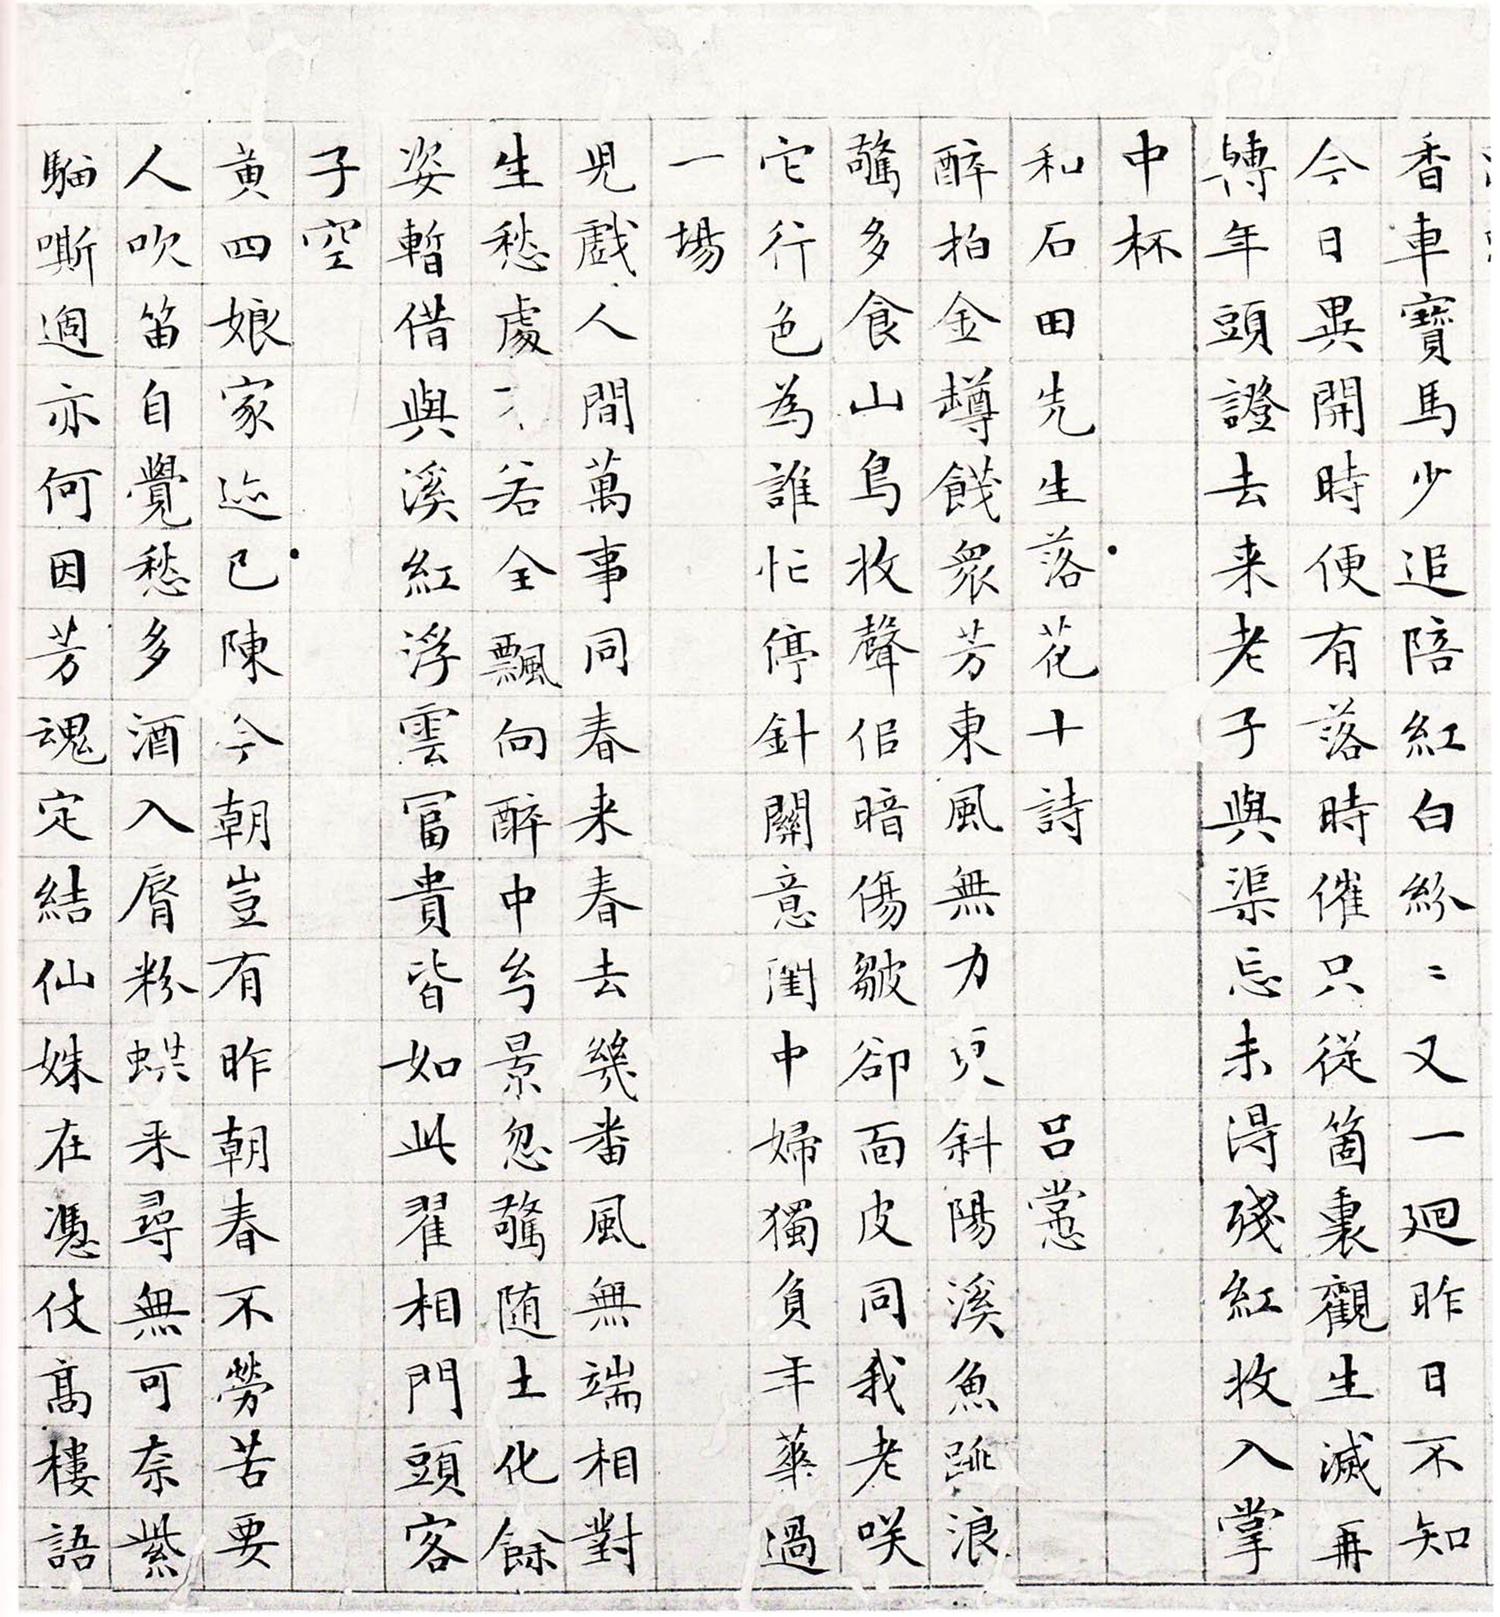 香車寶馬少追陪紅白紛〻又一廻昨日不知
今日異開時便有落時催只從箇裏觀生滅再
轉年頭證去来老子與渠忘未得殘紅收入掌
中杯
和石田先生落花十詩 吕㦂
醉拍金罇餞衆芳東風無力更斜陽溪魚跳浪
驚多食山鳥收聲倍暗傷皺卻面皮同我老咲
它行色為誰忙停針關意閨中婦獨負年華過
一場
児戲人間萬事同春来春去幾番風無端相對
生愁處不若全飄向醉中兮景忽驚随土化餘
姿暫借與溪紅浮雲冨貴皆如此翟相門頭客
子空
黄四娘家迹已陳今朝豈有昨朝春不勞苦要
人吹笛自覺愁多酒入脣粉蜨来尋無可奈紫
騮嘶過亦何因芳魂定結仙姝在憑仗髙樓語